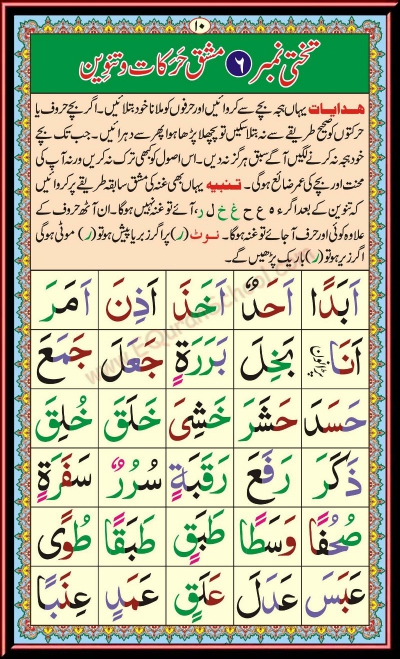 ١٠
تختی نمبر ٦ مشق حرکات و تنوین
ھدایات یہاں ہجے بچے سے کروائیں اور حرفوں کو ملانا خود بتلائیں۔ اگر بچے حروف یا
حرکتوں کو صحیح طریقے سے نہ بتلا سکیں تو پچھلا پڑھا ہوا پھر سے دہرائیں۔ جب تک بچے
خود ہجے نہ کرنے لگیں آگے سبق ہرگز نہ دیں۔ اس اصول کو بھی ترک نہ کریں ورنہ آپ کی
محنت اور بچے کی عمر ضائع ہوگی۔ تنبیہ یہاں بھی غنہ کی مشق سابقہ طریقے پر کروائیں
کہ تنوین کے بعد اگر ء ہ ع ح غ خ ل ر، آئے تو غنہ نہیں ہوگا۔ ان آٹھ حروف کے
علاوہ کوئی اور حرف آجائے تو غنہ ہوگا۔ نوٹ (ر) پر اگر زبر یا پیش ہو تو (ر) موٹی ہوگی
اگر زیر ہو تو (ر) باریک پڑھیں گے۔
اَبَدًا اَحَدٌ اَخَذَ اَذِنَ اَمَرَ
اَنَا بَخِلَ بَرَرَةٍ جَعَلَ جَمَعَ
حَسَدَ حَشَرَ خَشِیَ خَلَقَ خُلِقَ
ذَكَرَ رَفَعَ رَقَبَةٍ سُرُرٌ سَفَرَةٍ
صُحُفًا وَسَطًا طَبَقٍ طَبَقًا طُوًی
عَبَسَ عَدَلَ عَلَقٍ عَمَدٍ عِنَبًا